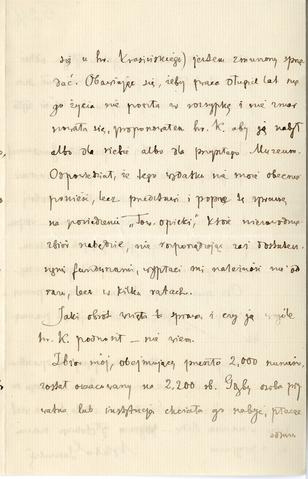 się u hr. Krasińskiego) jestem zmuszony sprze
dać. Obawiając się, żeby praca długich lat me
go życia nie poszła w rozsypkę i nie zmar
nowała się, proponowałem hr. K. aby ją nabył
albo dla siebie albo dla przyszłego Muzeum.
Odpowiedział, że tego wydatku nie może obecnie
ponieść, lecz przedstawi i poprze tę sprawę
na posiedzeniu „Tow. opieki,” które niezawodnie
zbiór nabędzie, nie rozporządzając zaś dostatecz
nymi funduszami, wypłaci mi należność nie od
razu, lecz w kilku ratach.
Jaki obrót wzięła ta sprawa i czy ją wogóle
hr. K podnosił – nie wiem.
Zbiór mój, obejmujący przeszło 2,000 numerów,
został oszacowany na 2,200 rb. Gdyby osoba pry
watna lub instytucja chciała go nabyć, płacąc